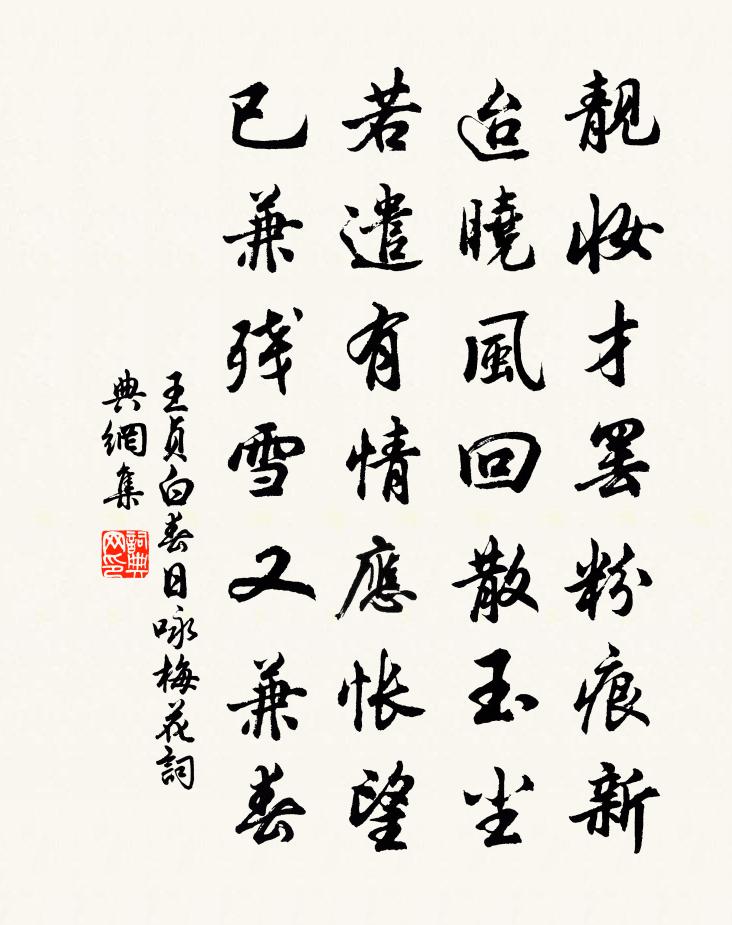 靚妆才罢粉痕新
迨曉風回散玉尘
若遣有情應怅望
已兼残雪又兼春
王貞白春日咏梅花詞
典網集
詞典网印